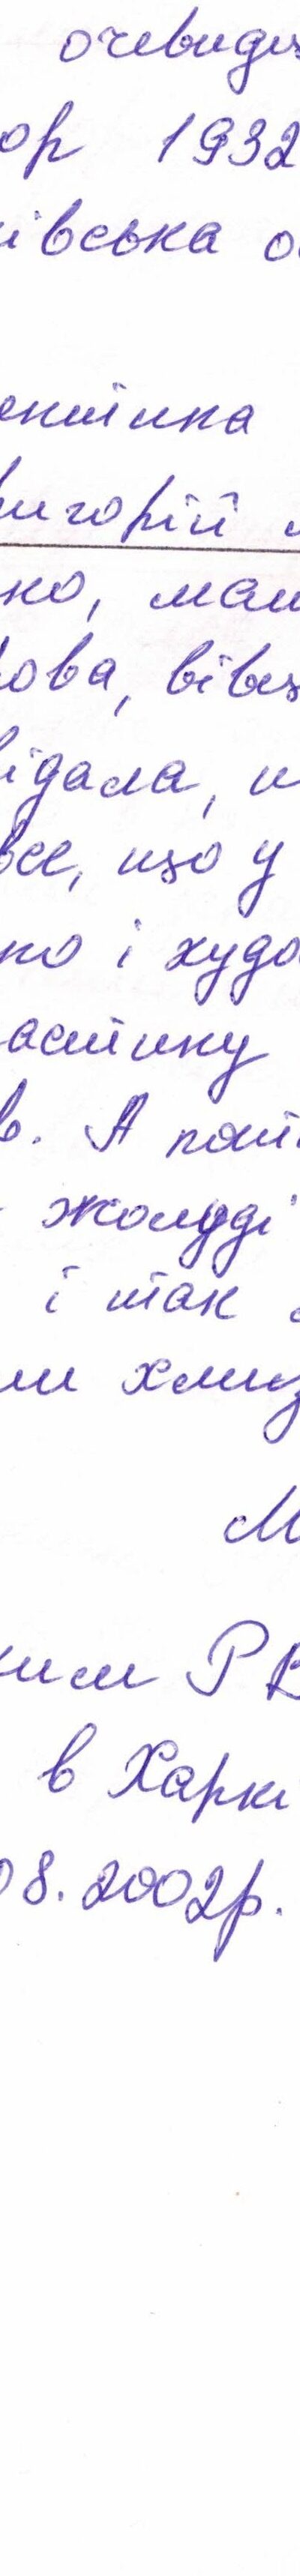 очевидц
ор 1932
ківська о
ентінка
ригорій
ко, мат
ова, вівц
ідала,
все, що у
но і худо
астинку
в. А поті
жолуді
і так
ли хмиз
М
ким РВ
в Харкі
08.2002р.